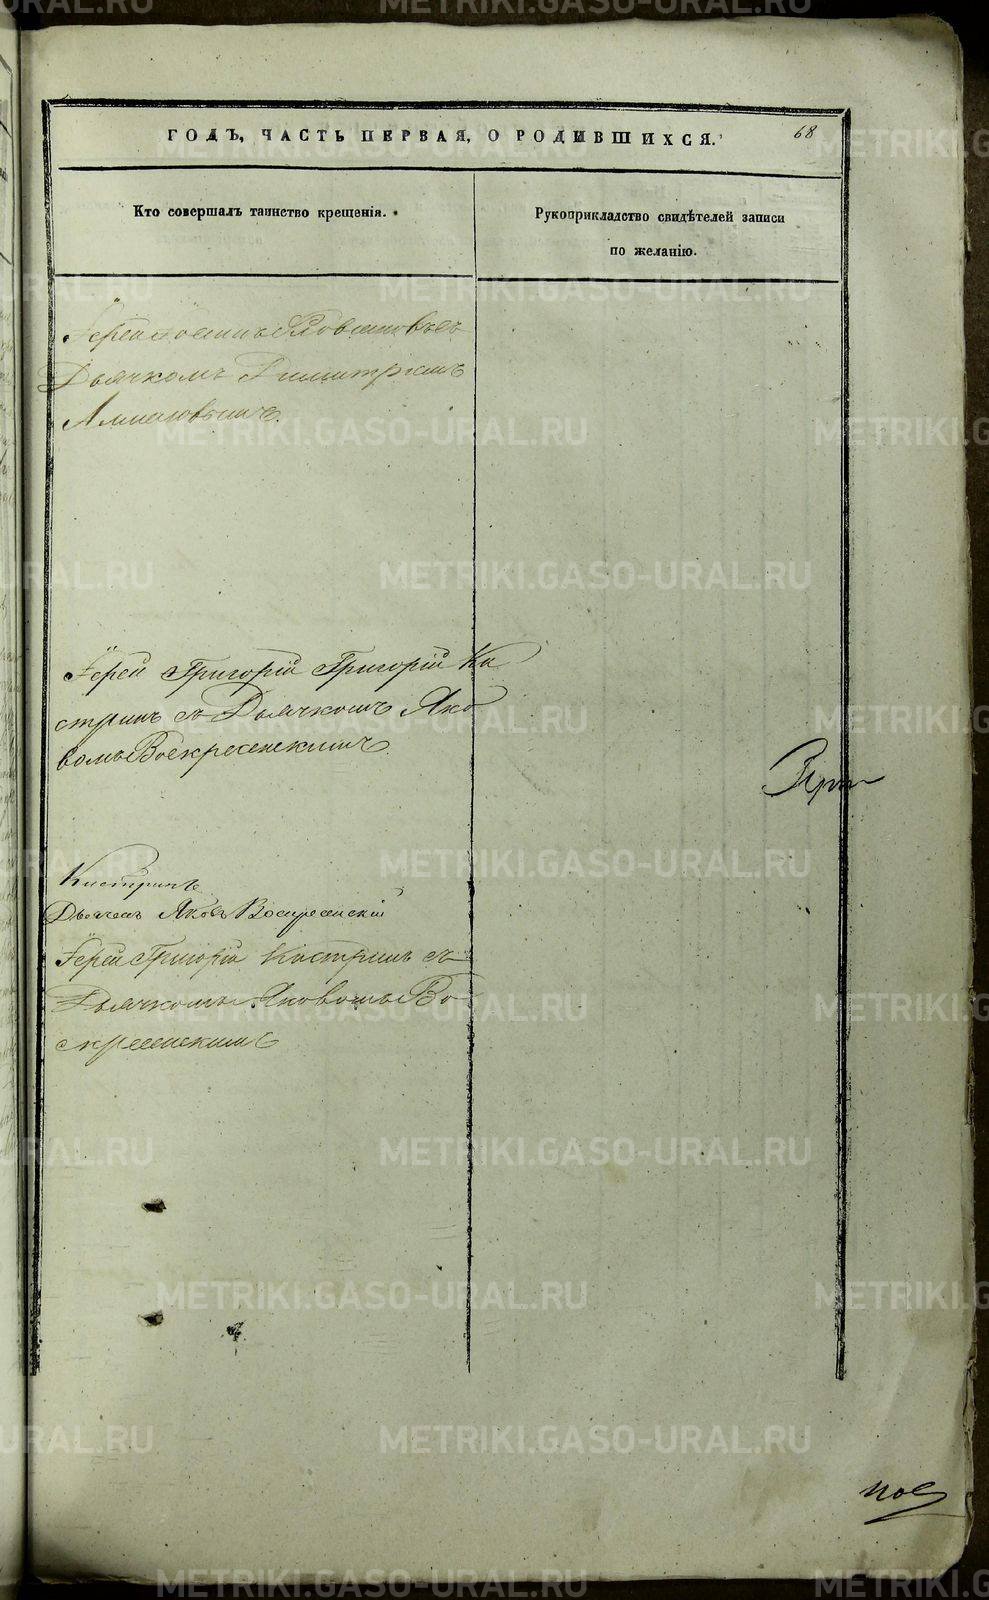 ГОДЪ, ЧАСТЬ ПЕРВАЯ, О РОДИВШИХСЯ.
68
Кто совершалъ таинство крещенія.
Рукоприкладство свидѣтелей записи
по желанію.
Іерей Іоаннъ съ
Дьячкомъ Димитріемъ
Іерей Григорій Григорій Ка
стринъ съ Дьячкомъ Яко
вомъ Воскресенскимъ
Кастринъ
Дьячекъ Яковъ Воскресенскій
Іерей Григорій Кастринъ съ
Дьячкомъ Яковомъ Во
скресенскимъ
METRIKI.GASO-URAL.RU